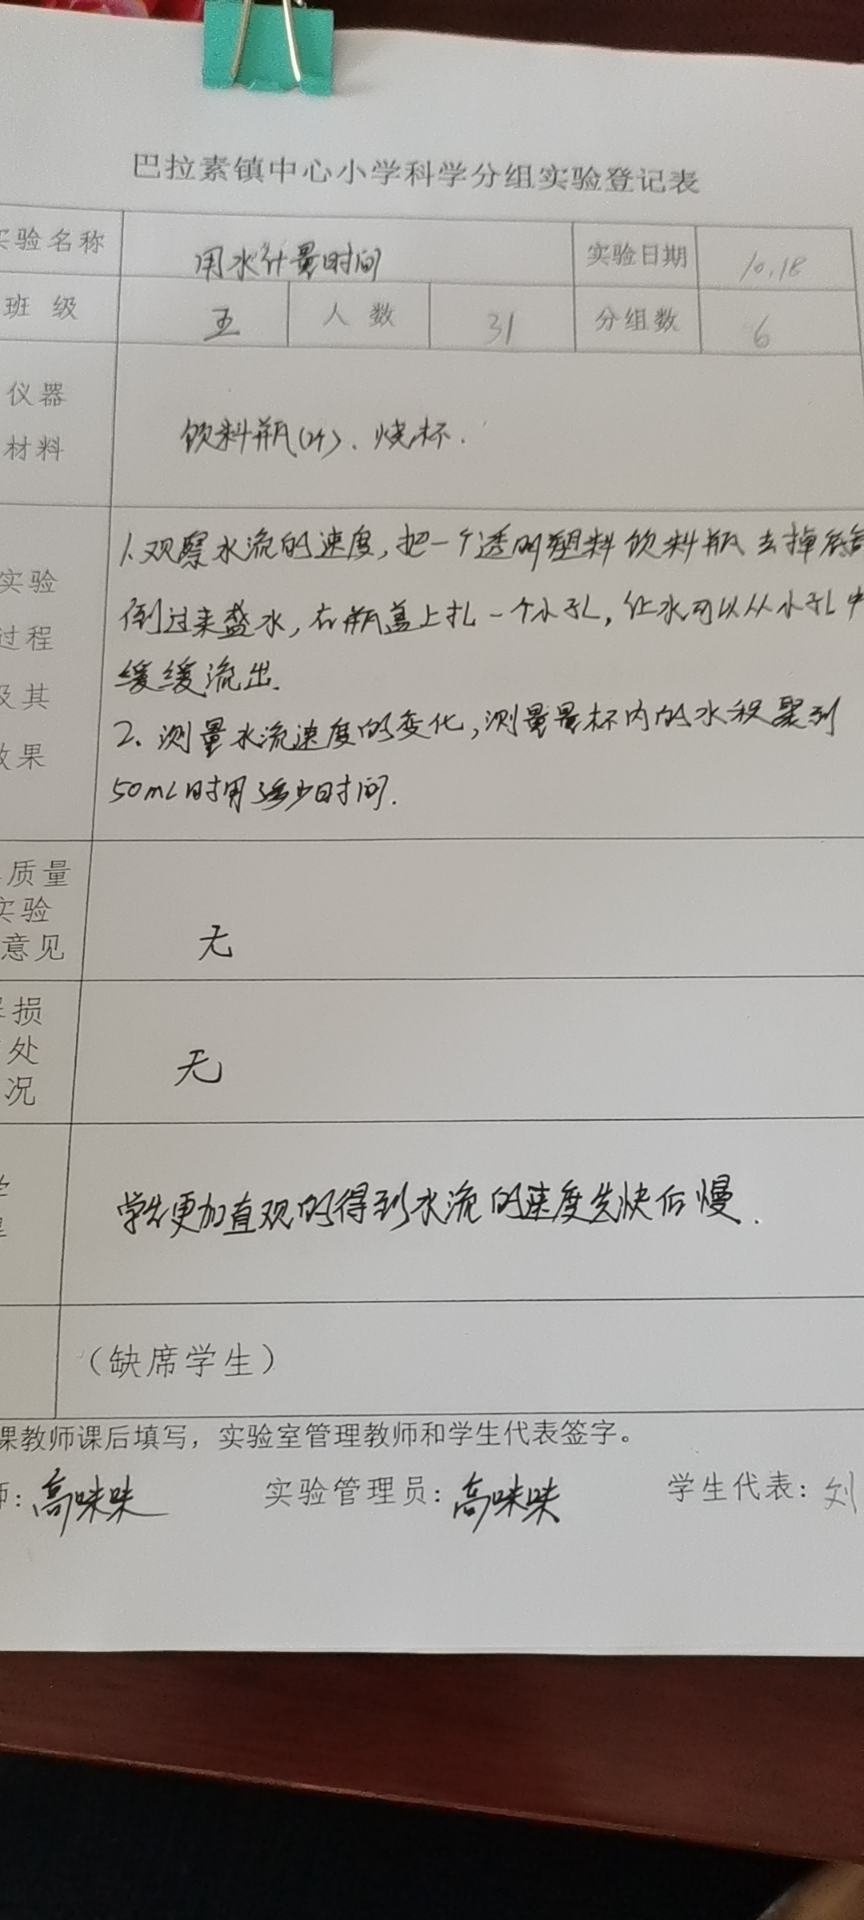 巴拉素镇中心小学科学分组实验登记表
实验名称 用水计量时间 实验日期 10.18
班 级 五 人 数 31 分组数 6
仪器
材料
饮料瓶(2个)、烧杯.
实验
过程
及其
效果
1.观察水流的速度,把一个透明塑料饮料瓶去掉底部
倒过来盛水,在瓶盖上扎一个小孔,让水可以从小孔中
缓缓流出.
2、测量水流速度的变化,测量量杯内的水积聚到
50mL时用多少时间.
质量
实验
意见
无
损
处
况
无
学生更加直观的得到水流的速度先快后慢.
（缺席学生）
课教师课后填写，实验室管理教师和学生代表签字。
师：高咪咪 实验管理员：高咪咪 学生代表：刘